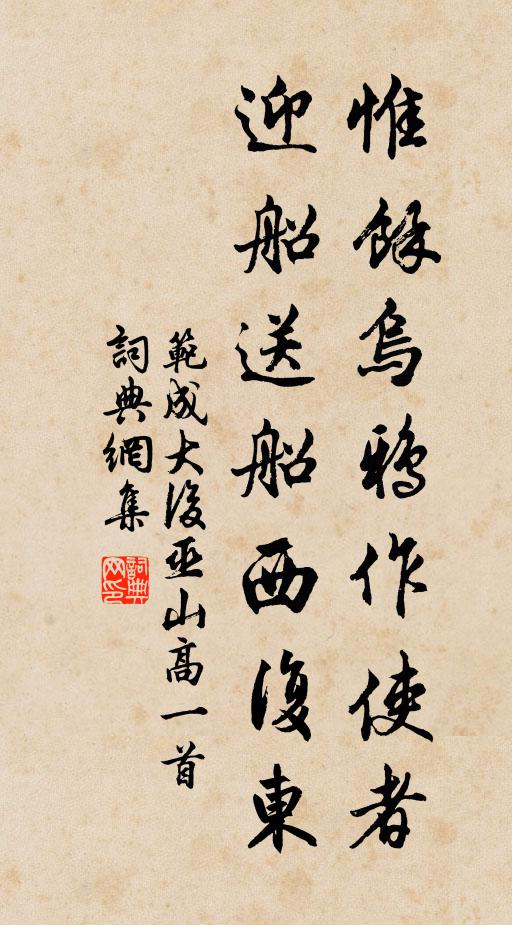 惟餘烏鴉作使者
迎船送船西復東
範成大後巫山高一首
詞典網集
詞典网印